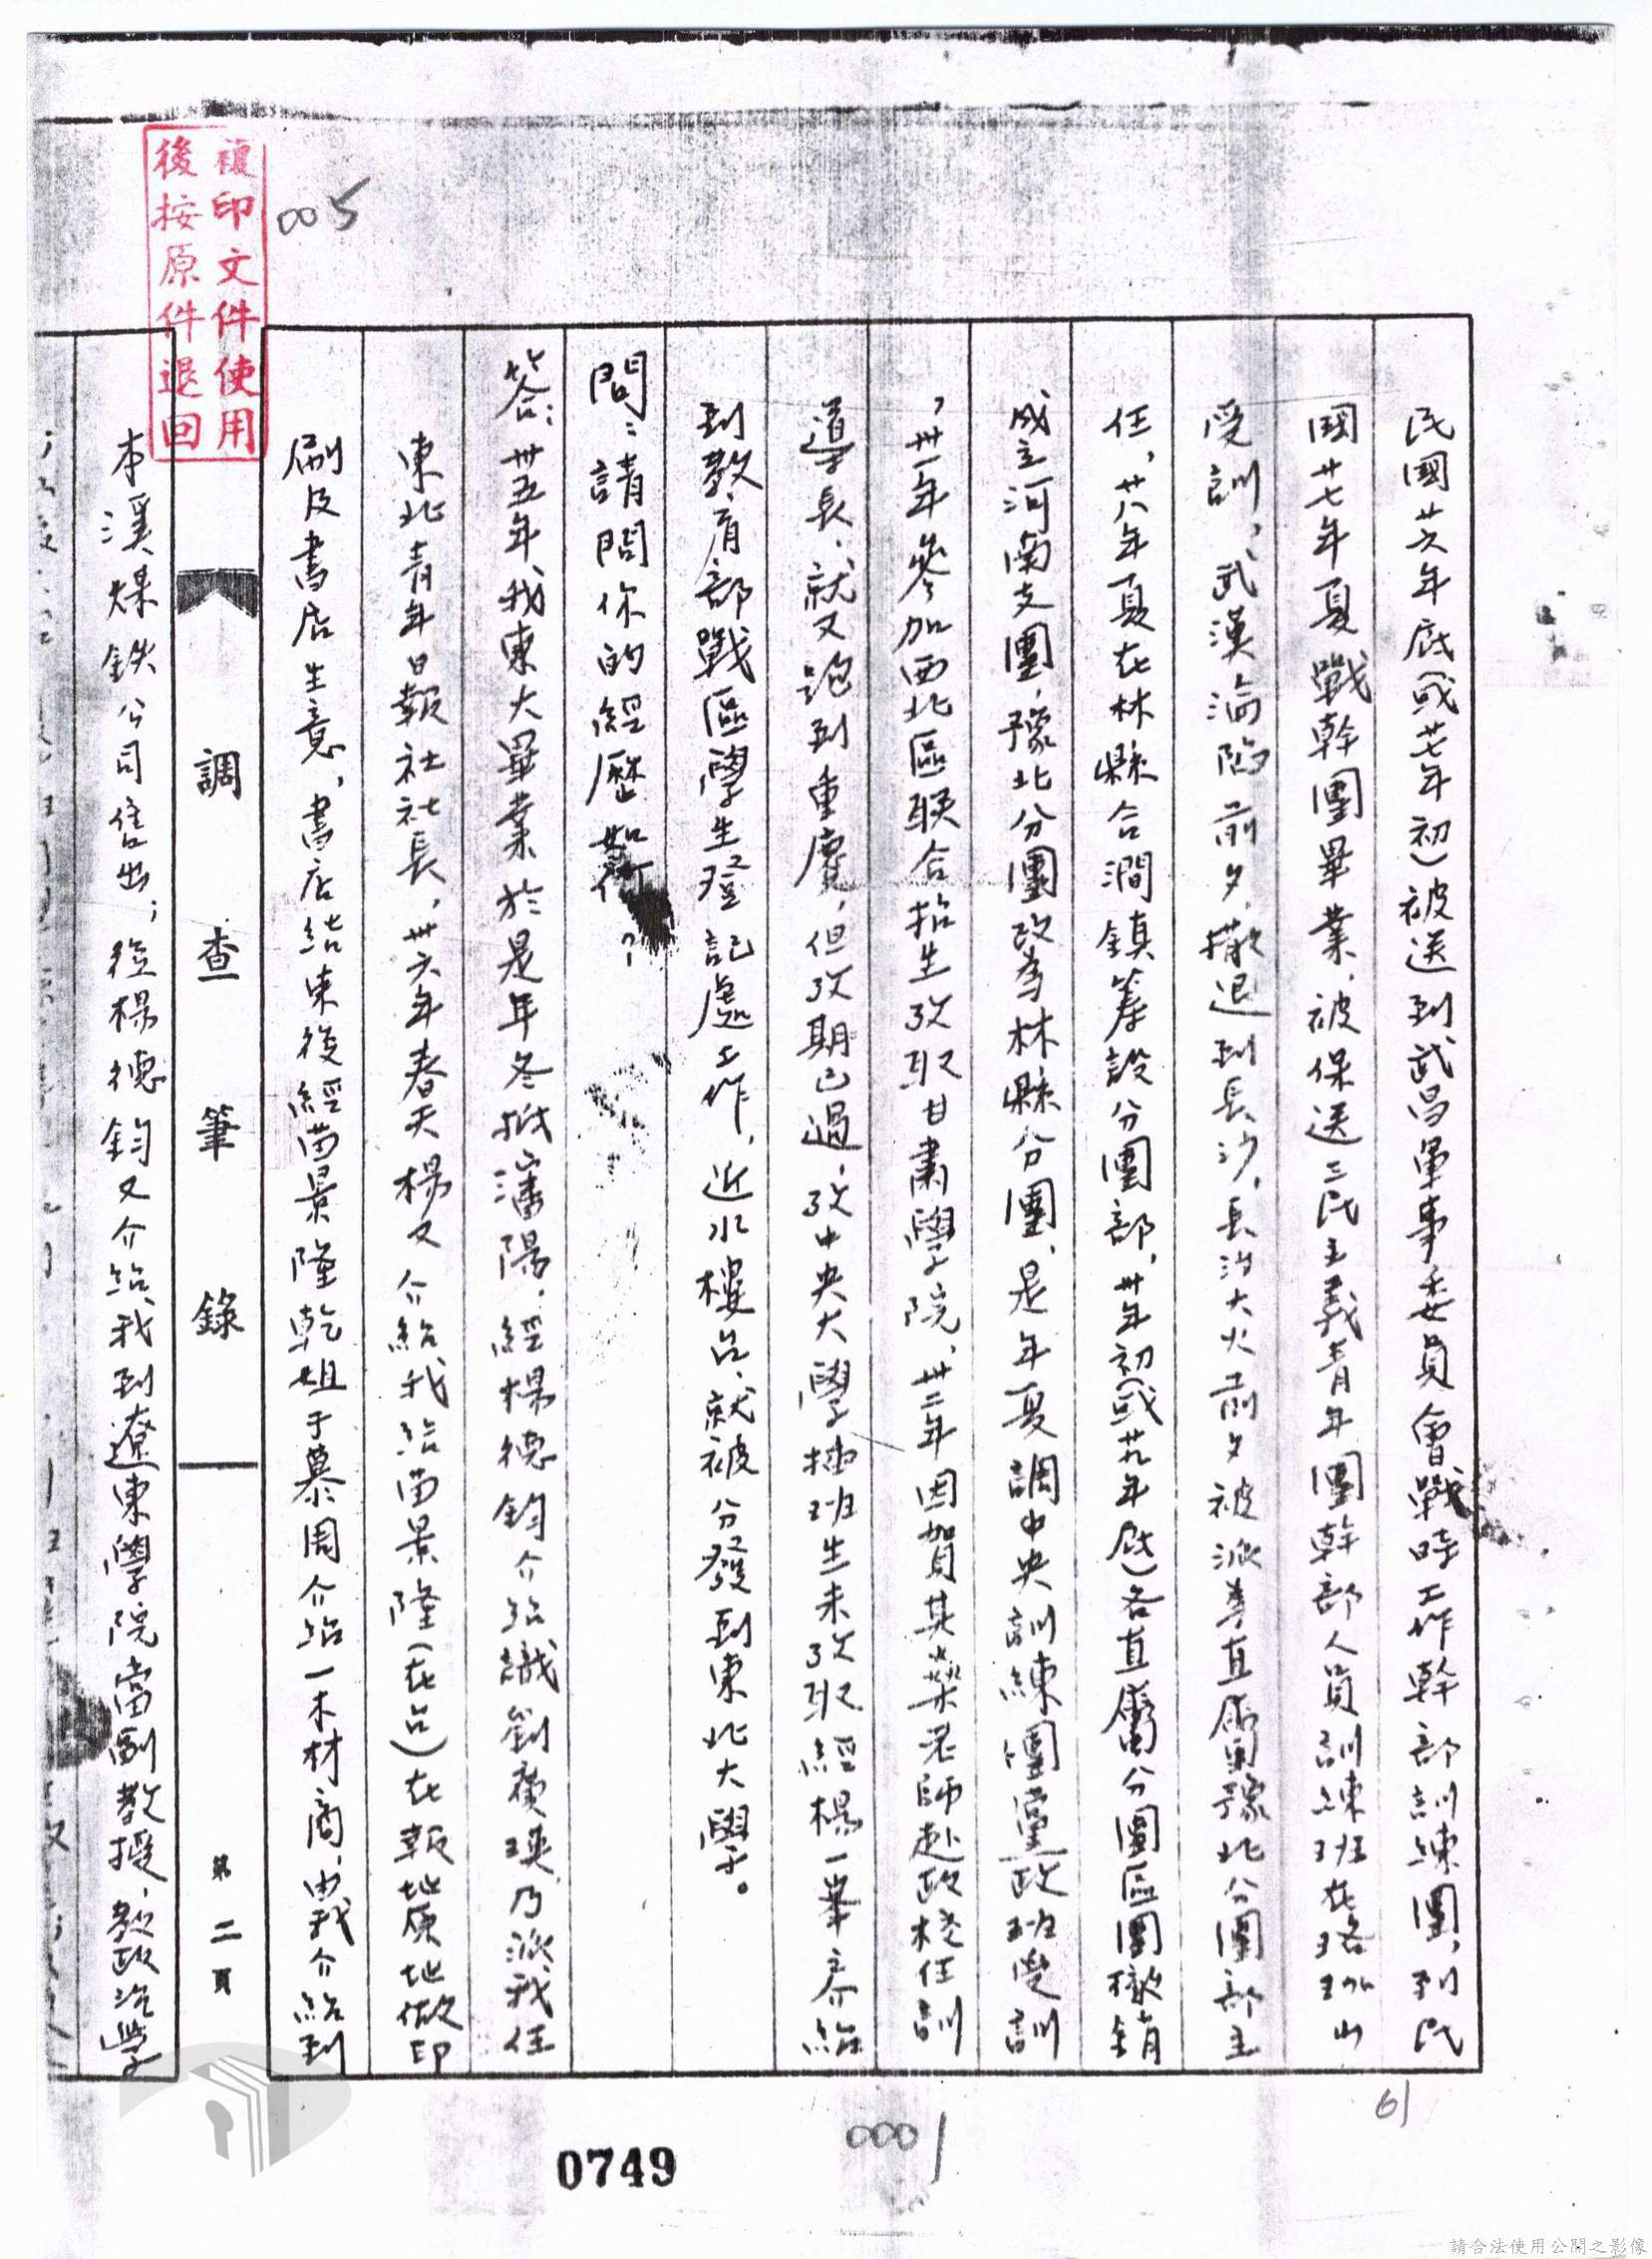 民國廿六年底(或廿七年初)被送到武昌軍事委員會戰時工作幹部訓練團,到民
國廿七年夏戰幹團畢業,被保送三民主義青年團幹部人員訓練班在珞珈山
受訓,武漢淪陷前夕,撤退到長沙,長沙大火前夕被派為直屬豫北分團部主
任,廿八年夏在林縣合澗鎮籌設分團部,卅年初(或廿九年底)各直屬分團區團撤銷
成立河南支團,豫北分團改為林縣分團,是年夏調中央訓練團黨政班受訓
,卅一年參加西北區联合招生攷取甘肅學院,卅二年因賀其燊老師赴政校任訓
導長,就又跑到重慶,但攷期已過,攷中央大學插班生未攷取經楊一峯介紹
到教育部戰區學生登記處工作,近水樓台,就被分發到東北大學。
問:請問你的經歷如何?
答:卅五年我東大畢業於是年冬抵瀋陽,經楊德鈞介紹識劉廣瑛,乃派我任
東北青年日報社社長,卅六年春天楊又介紹我給苗景隆(在台)在報社原地做印
刷及書店生意,書店結束後經苗景隆乾姐于慕周介紹一木材商,由我介紹到
調查筆錄
第二頁
本溪煤鉄公司售出;後楊德鈞又介紹我到遼東學院當副教授,教政治學
複印文件使用
後按原件退回
005
61
0001
0749
請合法使用公開之影像